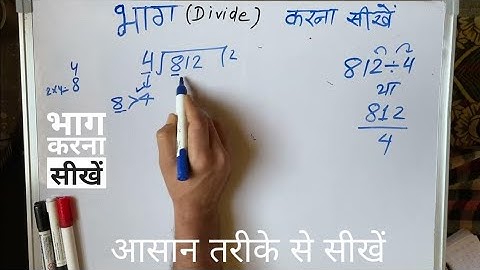 भाग (Divide) करना सीखें
4
2×4=8
4 ) 812 ( 2
8 > 4
812 ÷ 4
या
812
4
भाग
करना
सीखें
आसान तरीके से सीखें